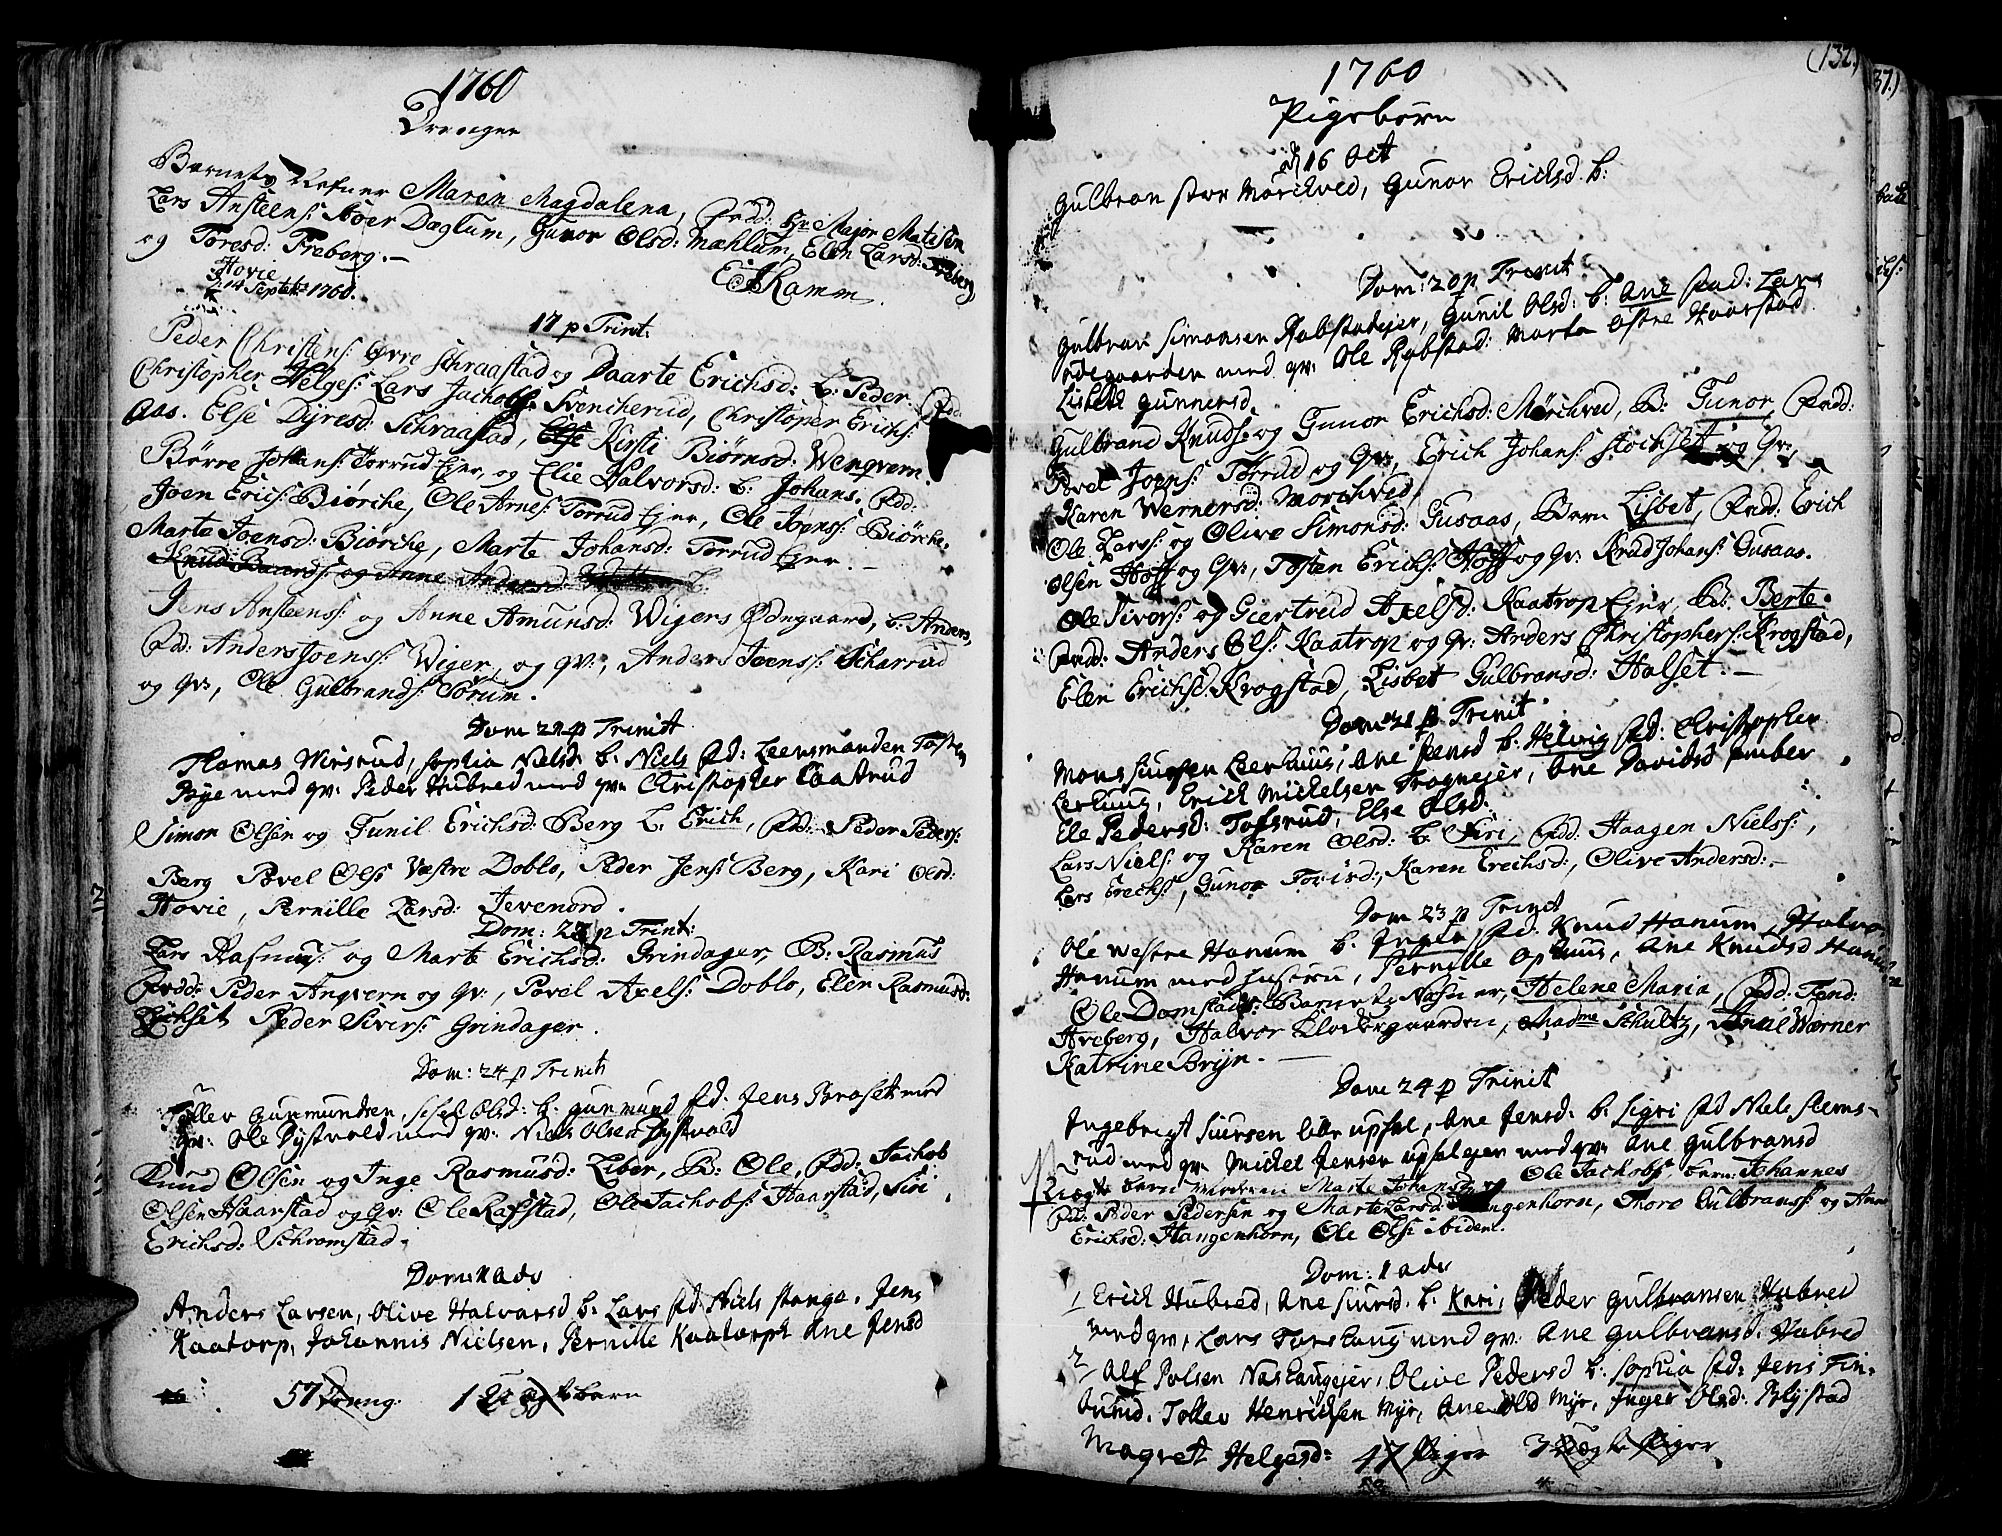 1760
Drenger
Barnets Nefn er Maren Magdalena, Fadd: Hr Major Matisen
Lars Ansteens: Stöer Daglum, Gunor Olsd: Mæhlum, Elen Larsd: Freberg
og Toresd: Freberg. —
Hovie
d. 14 Septbr 1760.
Ramm
17 p Trint:
Peder Christens: Øvre Schraastad og Daarte Erichsd: b. Peder. Fadd:
Christopher Helges: Lars Jachobs: Svencherud, Christopher Erichs:
Aas. Else Dyresd: Schraastad, Else Kirsti Biørnsd: Wengvern
Børre Johans: Torrud Ejer, og Elie Halvorsd: b: Johans. Fdd:
Joen Erics: Biørche, Ole Arnes: Torrud Ejer, Ole Joens: Biørche.
Marte Joensd: Biørche, Marte Johansd: Torrud Ejer. —
Knud Baards: og Anne Andersd: b:
Jens Ansteens: og Anne Amunsd: Wigers Ødegaard, b: Anders,
Fdd: Anders Joens: Wiger, og qv:, Anders Joens: Scharrud
og qv:, Ole Gulbrands: Sörum.
Dom 22 p Trinit
Thomas Wirsrud, Sophia Nielsd. b. Niels fd: Leensmanden Tosten
Rye med qv: Peder Hubred med qv: Christopher Caatrud
Simon Olsen og Gunil Erichsd: Berg b. Erich, Fdd: Peder Peders:
Berg Povel Ols: Væstre Doblo, Peder Jens: Berg, Kari Olsd:
Hovie, Pernille Larsd: Jevenord.
Dom: 22 p Trint:
Lars Rasmus: og Marte Erichsd: Grindager, B: Rasmus
Fvdd: Peder Angvern og qv:, Povel Axels: Doblo, Elen Rasmusd:
Lychset Peder Sivers: Grindager.
Dom: 24 p Trinit
Tollev Gunmundsen, Sisel Olsd: b: Gunmund fd: Jens Broset med
qv: Ole Dystvold med qv: Niels Olsen Dystvold
Knud Olsen og Inge Rasmusd: Liber, B: Ole, Fdd: Jachob
Olsen Haarstad og qv: Ole Rafstad, Ole Jachobs: Haarstad, Siri
Erichsd: Schromstad.
Dom: 1 adv
Anders Larsen, Olive Halvarsd b. Lars fd Niels Stange, Jens
Kaatorp, Johannis Nielsen, Pernille Kaatorp, Ane Jensd
57 Dreng. 1 Uægte barn
1760
(132.)
Pigebörn
d 16 Oct
Gulbran Stor Mörchved, Gunor Ericksd. b:
Dom: 20 p Trinit
Gulbran Simonsen Rabstadejer, Gunil Olsd: b: Ane fad: Lars
ødegaarden med qv: Ole Rabstad: Marta Østre Haarstad
Lisbeth Gunnersd.
Gulbrand Knuds: og Gunor Erichsd: Mörchved, B: Gunor, Fadd:
Povel Joens: Torrud og Qv:, Erich Johans: Stochset og Qv:,
Karen Wernersd: Morchved,
Ole Lars: og Olive Simonsd: Gusaas, Barn Lisbet, Fadd: Erich
Olsen Hoff og Qv:, Tosten Erichs: Hoff og Qv: Knud Johans: Gusaas.
Ole Sivers: og Giertrud Axelsd: Kaatrop Ejer, B: Berte.
Fadd: Anders Ols: Kaatrop og Qv: Anders Christophers: Krogstad,
Elen Erichsd: Krogstad, Lisbet Gulbransd: Halset. —
Dom 21 p Trinit.
Mons Siursen Leerhuus, Ane Stensd b. Helvig fd: Christopher
Lerhuus, Erick Mickelsen Frognejer, Ane Davidsd Ember
Ele Pedersd: Tofsrud, Else Olsd:
Lars Niels: og Karen Olsd: b. Siri, Fdd: Haagen Niels:,
Lars Erichs:, Gunor Torisd:, Karen Erichsd:, Olive Andersd: —
Dom 23 p Trinit
Ole Westre Hanum b. Inger, fd. Knud Hanum, Halvo
Hanum med hustru, Pernille Ophuus, Ane Knudsd Hanu
Ole Domstad: Barnets Nafn er, Helene Maria, Fdd: Fend:
Hveberg, Halvor Klostergaarden, Madme Schultz, Werner
Katrine Bryn. —
Dom 24 p Trinit
Ingebrigt Siursen Upsal, Ane Jensd: b. Sigri fd Niels Stems-
rud med qv: Mickel Jensen Upsalejer med qv: Ane Gulbransd
Uægt barn Moderen Marte Johansd og Ole Jachobs: barn: Johannes
Fdd: Peder Pedersen og Marte Larsd: Hangenhorn, Thore Gulbrans: og Anne
Erichsd: Hangenhorn, Ole Ols: ibidem.
Dom: 1 adv
1/ Erick Hubred, Ane Siursd. b. Kari, Peder Gulbransen Hubred
med qv, Lars Torshaug med qv: Ane Gulbransd. Hubred
2/ Alf Polsen Næshaugejer, Olive Pedersd b. Sophia fd: Jens Fin-
bund. Tollev Henrichsen Myr, Ane Olsd Myr, Inger Olsd: Blystad
Magret Helgesd: 47 Piger 3 Uægte Piger